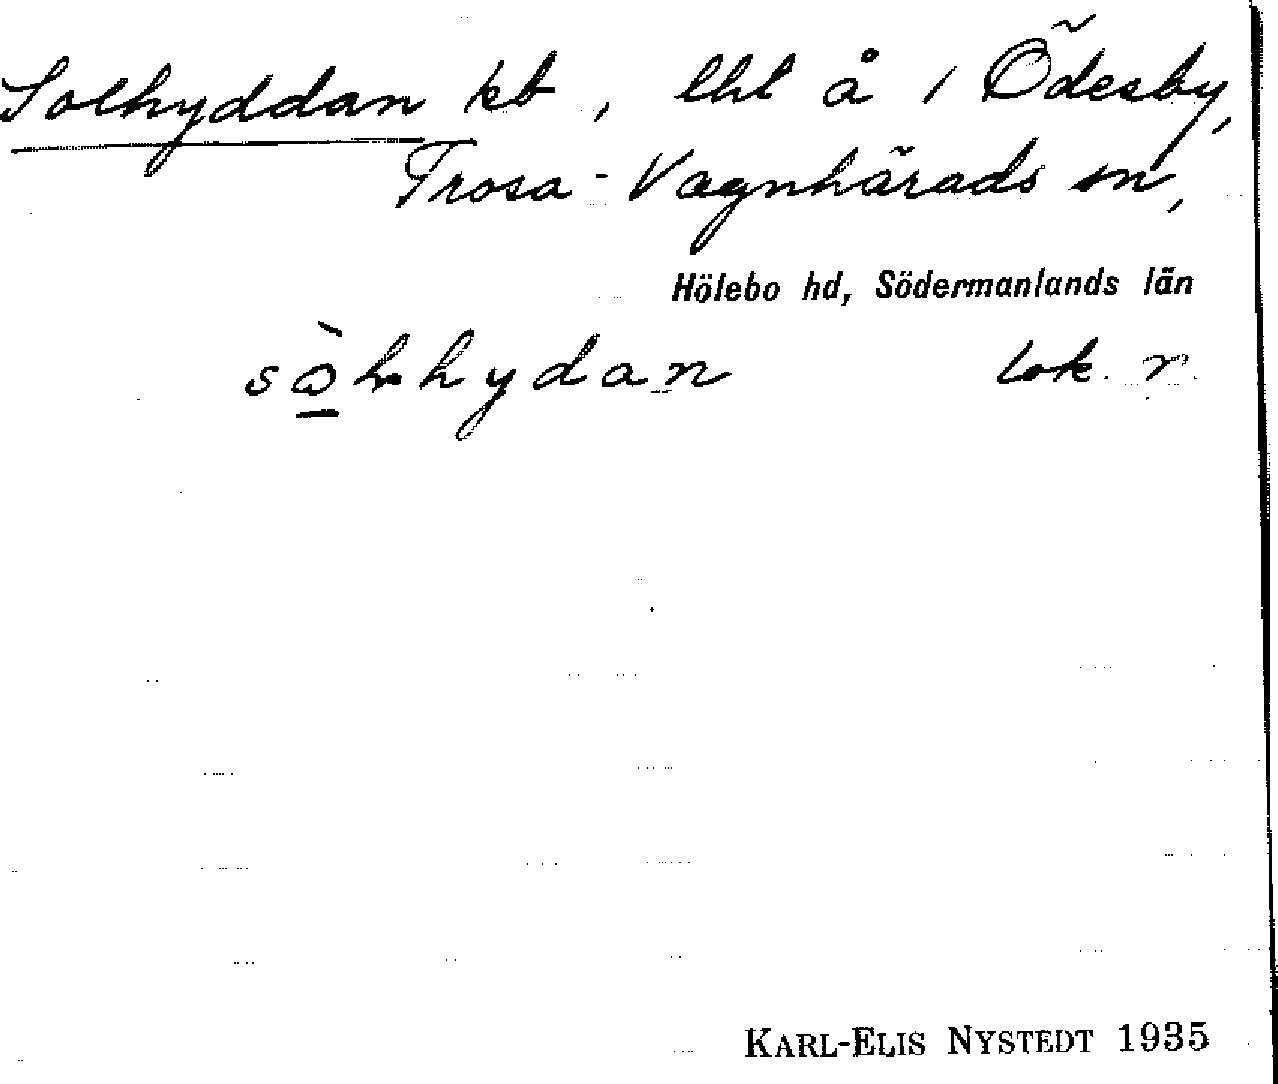 Solhyddan kb, lhl å 1 Ödesby,
Trosa-Vagnhärads sn,
Hölebo hd, Södermanlands län
lok. r.
KARL-ELIS NYSTEDT 1935